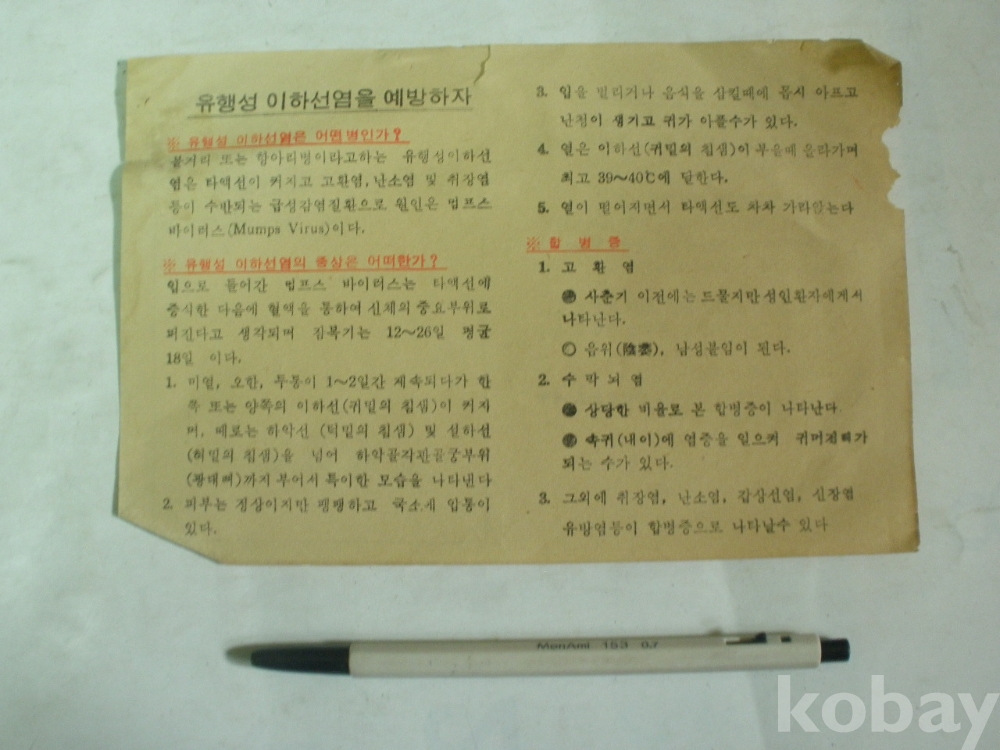 유행성 이하선염을 예방하자
※ 유행성 이하선염은 어떤병인가?
볼거리 또는 항아리병이라고하는 유행성이하선
염은 타액선이 커지고 고환염, 난소염 및 취장염
등이 수반되는 급성감염질환으로 원인은 멈프스
바이러스(Mumps Virus)이다.
※ 유행성 이하선염의 증상은 어떠한가?
입으로 들어간 멈프스 바이러스는 타액선에
증식한 다음에 혈액을 통하여 신체의 중요부위로
퍼진다고 생각되며 잠복기는 12~26일 평균
18일 이다.
1. 미열, 오한, 두통이 1~2일간 계속되다가 한
쪽 또는 양쪽의 이하선(귀밑의 침샘)이 커지
며, 때로는 하악선 (턱밑의 침샘) 및 설하선
(혀밑의 침샘)을 넘어 하악골각관골궁부위
(광대뼈)까지 부어서 특이한 모습을 나타낸다
2. 피부는 정상이지만 팽팽하고 국소에 압통이
있다.
3. 입을 벌리거나 음식을 삼킬때에 몹시 아프고
난청이 생기고 귀가 아플수가 있다.
4. 열은 이하선(귀밑의 침샘)이 부을때 올라가며
최고 39~40℃에 달한다.
5. 열이 떨어지면서 타액선도 차차 가라앉는다
※ 합 병 증
1. 고 환 염
● 사춘기 이전에는 드물지만 성인환자에게서
나타난다.
○ 음위(陰萎), 남성불임이 된다.
2. 수 막 뇌 염
● 상당한 비율로 본 합병증이 나타난다
● 속귀(내이)에 염증을 일으켜 귀머거리가
되는 수가 있다.
3. 그외에 취장염, 난소염, 갑상선염, 신장염
유방염등이 합병증으로 나타날수 있다
MonAmi 153 0.7
kobay